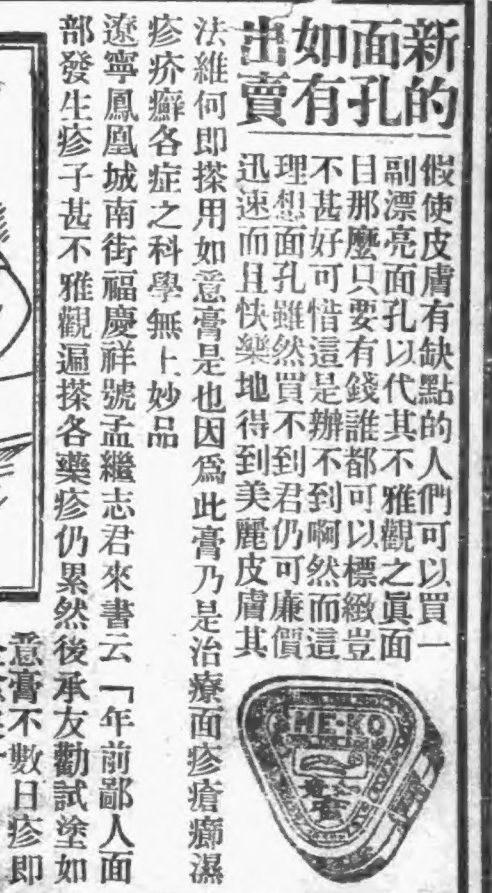 新的
面孔
如有
出賣
假使皮膚有缺點的人們可以買一
副漂亮面孔以代其不雅觀之眞面
目那麼只要有錢誰都可以標緻豈
不甚好可惜這是辦不到啊然而這
理想面孔雖然買不到君仍可廉價
迅速而且快樂地得到美麗皮膚其
法維何即搽用如意膏是也因爲此膏乃是治療面疹瘡癤濕
疹疥癬各症之科學無上妙品
遼寧鳳凰城南街福慶祥號孟繼志君來書云「年前鄙人面
部發生疹子甚不雅觀遍搽各藥疹仍累然後承友勸試塗如
意膏不數日疹即
HE-KO